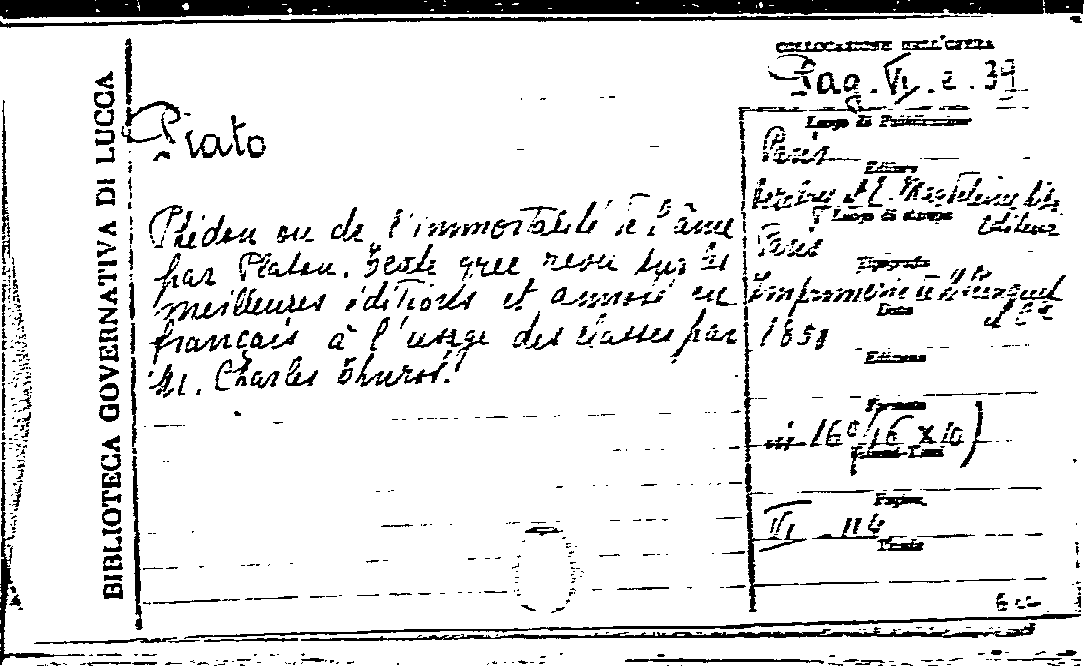 BIBLIOTECA GOVERNATIVA DI LUCCA
COLLOCAZIONE DELL'OPERA
Pag. VI. e. 39
Plato
Luogo di Pubblicazione
Paris
Editore
et L. Magdeleine
Editeur
Luogo di stampa
Paris
Phédon ou de l'immortalité de l'âme
par Platon. Texte grec revu sur les
meilleures éditions et annoté en
français à l'usage des classes par
M. Charles Thurot.
Tipografo
Imprimerie
Data
Edizione
Formato
in 16° (16 x 10)
Pagine
VI 114